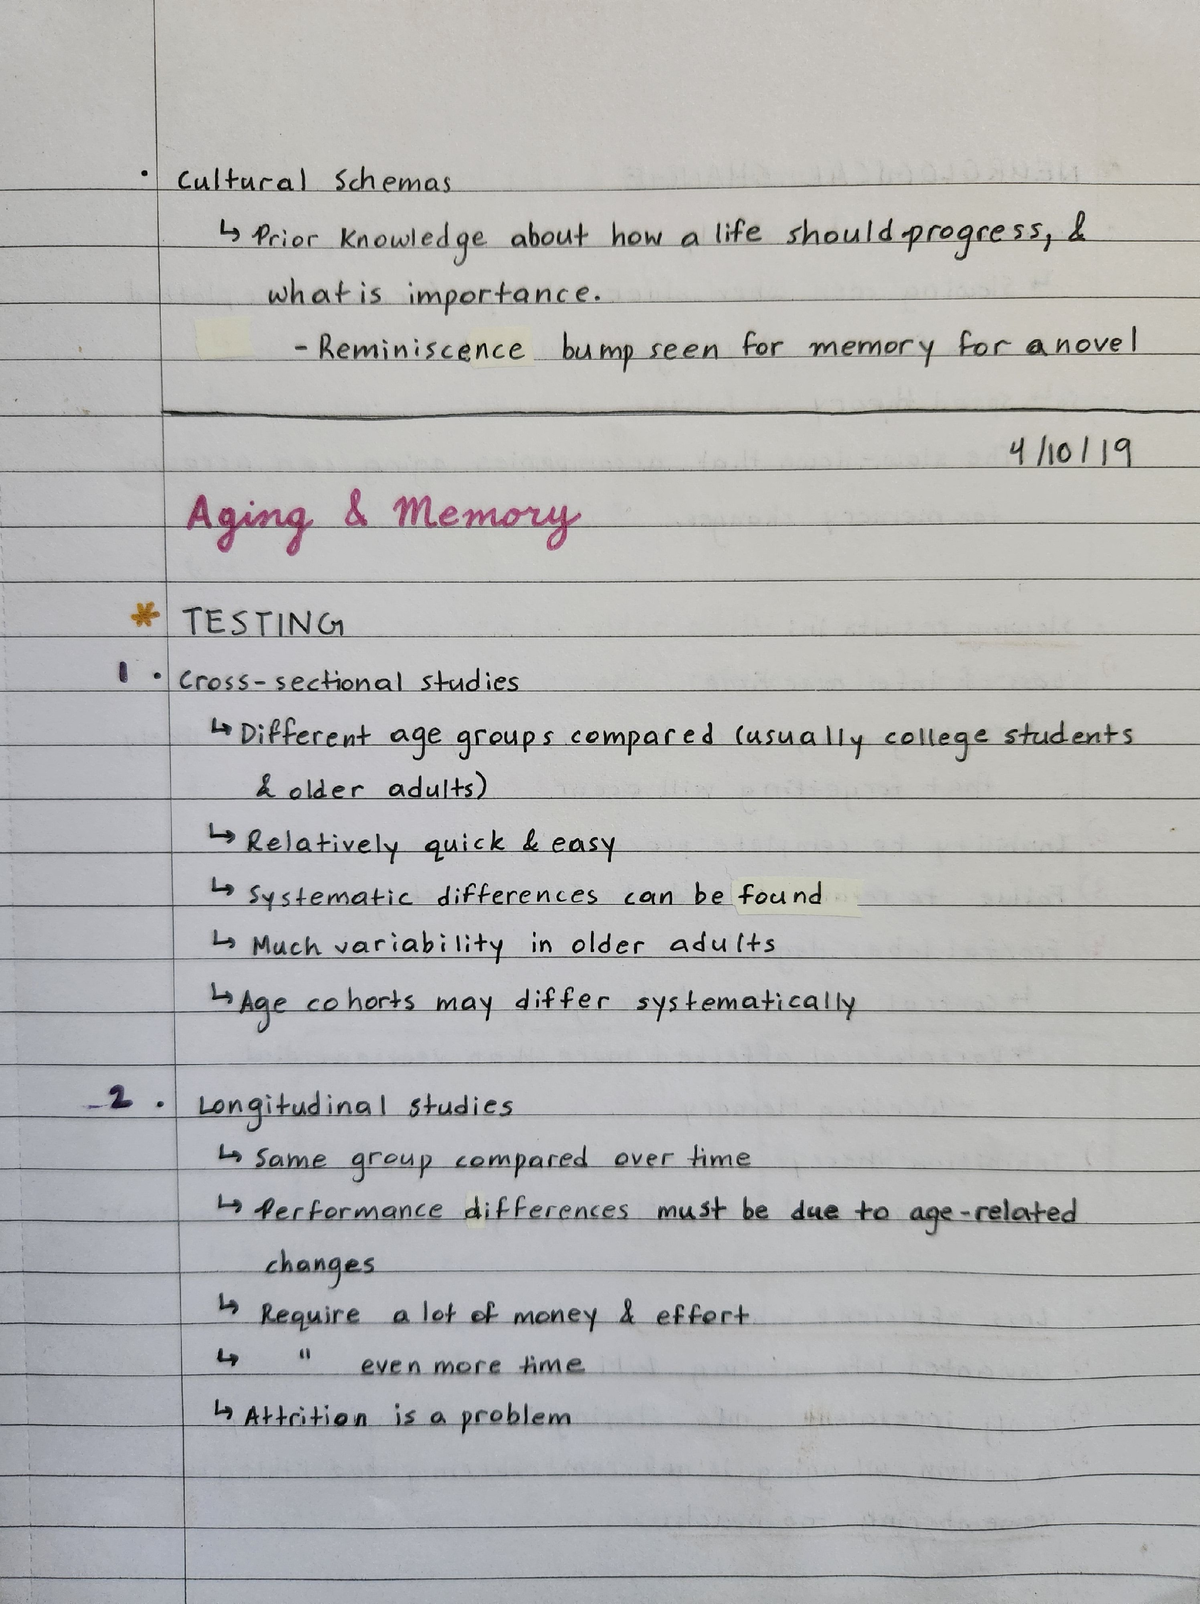 · Cultural Schemas
↳ Prior Knowledge about how a life should progress, &
what is importance.
- Reminiscence bump seen for memory for a novel
4/10/19
Aging & Memory
* TESTING
1 · Cross-sectional studies
↳ Different age groups compared (usually college students
& older adults)
↳ Relatively quick & easy
↳ Systematic differences can be found
↳ Much variability in older adults
↳ Age cohorts may differ systematically
2 · Longitudinal studies
↳ Same group compared over time
↳ Performance differences must be due to age-related
changes
↳ Require a lot of money & effort
↳ " even more time
↳ Attrition is a problem